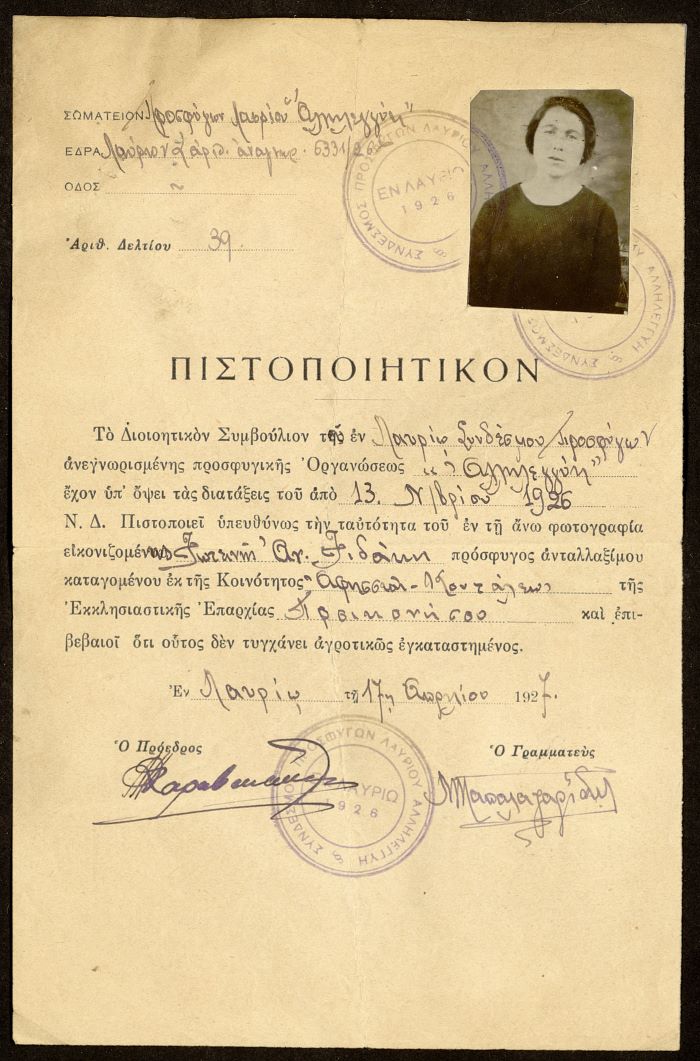 ΣΩΜΑΤΕΙΟΝ Προσφύγων Λαυρίου "Αλληλεγγύη"
ΕΔΡΑ Λαύριον αριθ. αναγνωρ. 5331
ΟΔΟΣ
Ἀριθ. Δελτίου 39
ΣΥΝΔΕΣΜΟΣ ΠΡΟΣΦΥΓΩΝ ΛΑΥΡΙΟΥ ΑΛΛΗΛΕΓΓΥΗ
ΕΝ ΛΑΥΡΙΩ
1926
Υ ΑΛΛΗΛΕΓΓΥΗ § ΣΥΝΔΕΣΜΟΣ
ΠΙΣΤΟΠΟΙΗΤΙΚΟΝ
Τὸ Διοιοητικὸν Συμβούλιον τοῦ ἐν Λαυρίῳ Συνδέσμου Προσφύγων
ἀνεγνωρισμένης προσφυγικῆς Ὀργανώσεως "ἡ Αλληλεγγύη"
ἔχον ὑπ' ὄψει τὰς διατάξεις τοῦ ἀπὸ 13 Ν/βρίου 1926
Ν. Δ. Πιστοποιεῖ ὑπευθύνως τὴν ταὐτότητα τοῦ ἐν τῇ ἄνω φωτογραφία
εἰκονιζομένου Φωτεινῆ Αν. πρόσφυγος ἀνταλλαξίμου
καταγομένου ἐκ τῆς Κοινότητος Αφησσιάς - Κουτάλεως τῆς
Ἐκκλησιαστικῆς Ἐπαρχίας Προικονήσου καὶ ἐπι-
βεβαιοῖ ὅτι οὗτος δὲν τυγχάνει ἀγροτικῶς ἐγκαταστημένος.
Ἐν Λαυρίῳ τῇ 17η Απριλίου 1927.
Ὁ Πρόεδρος Ὁ Γραμματεὺς
ΠΡΟΣΦΥΓΩΝ ΛΑΥΡΙΟΥ ΑΛΛΗΛΕΓΓΥΗ § ΣΥΝΔΕΣΜΟΣ
ΛΑΥΡΙΩ
1926